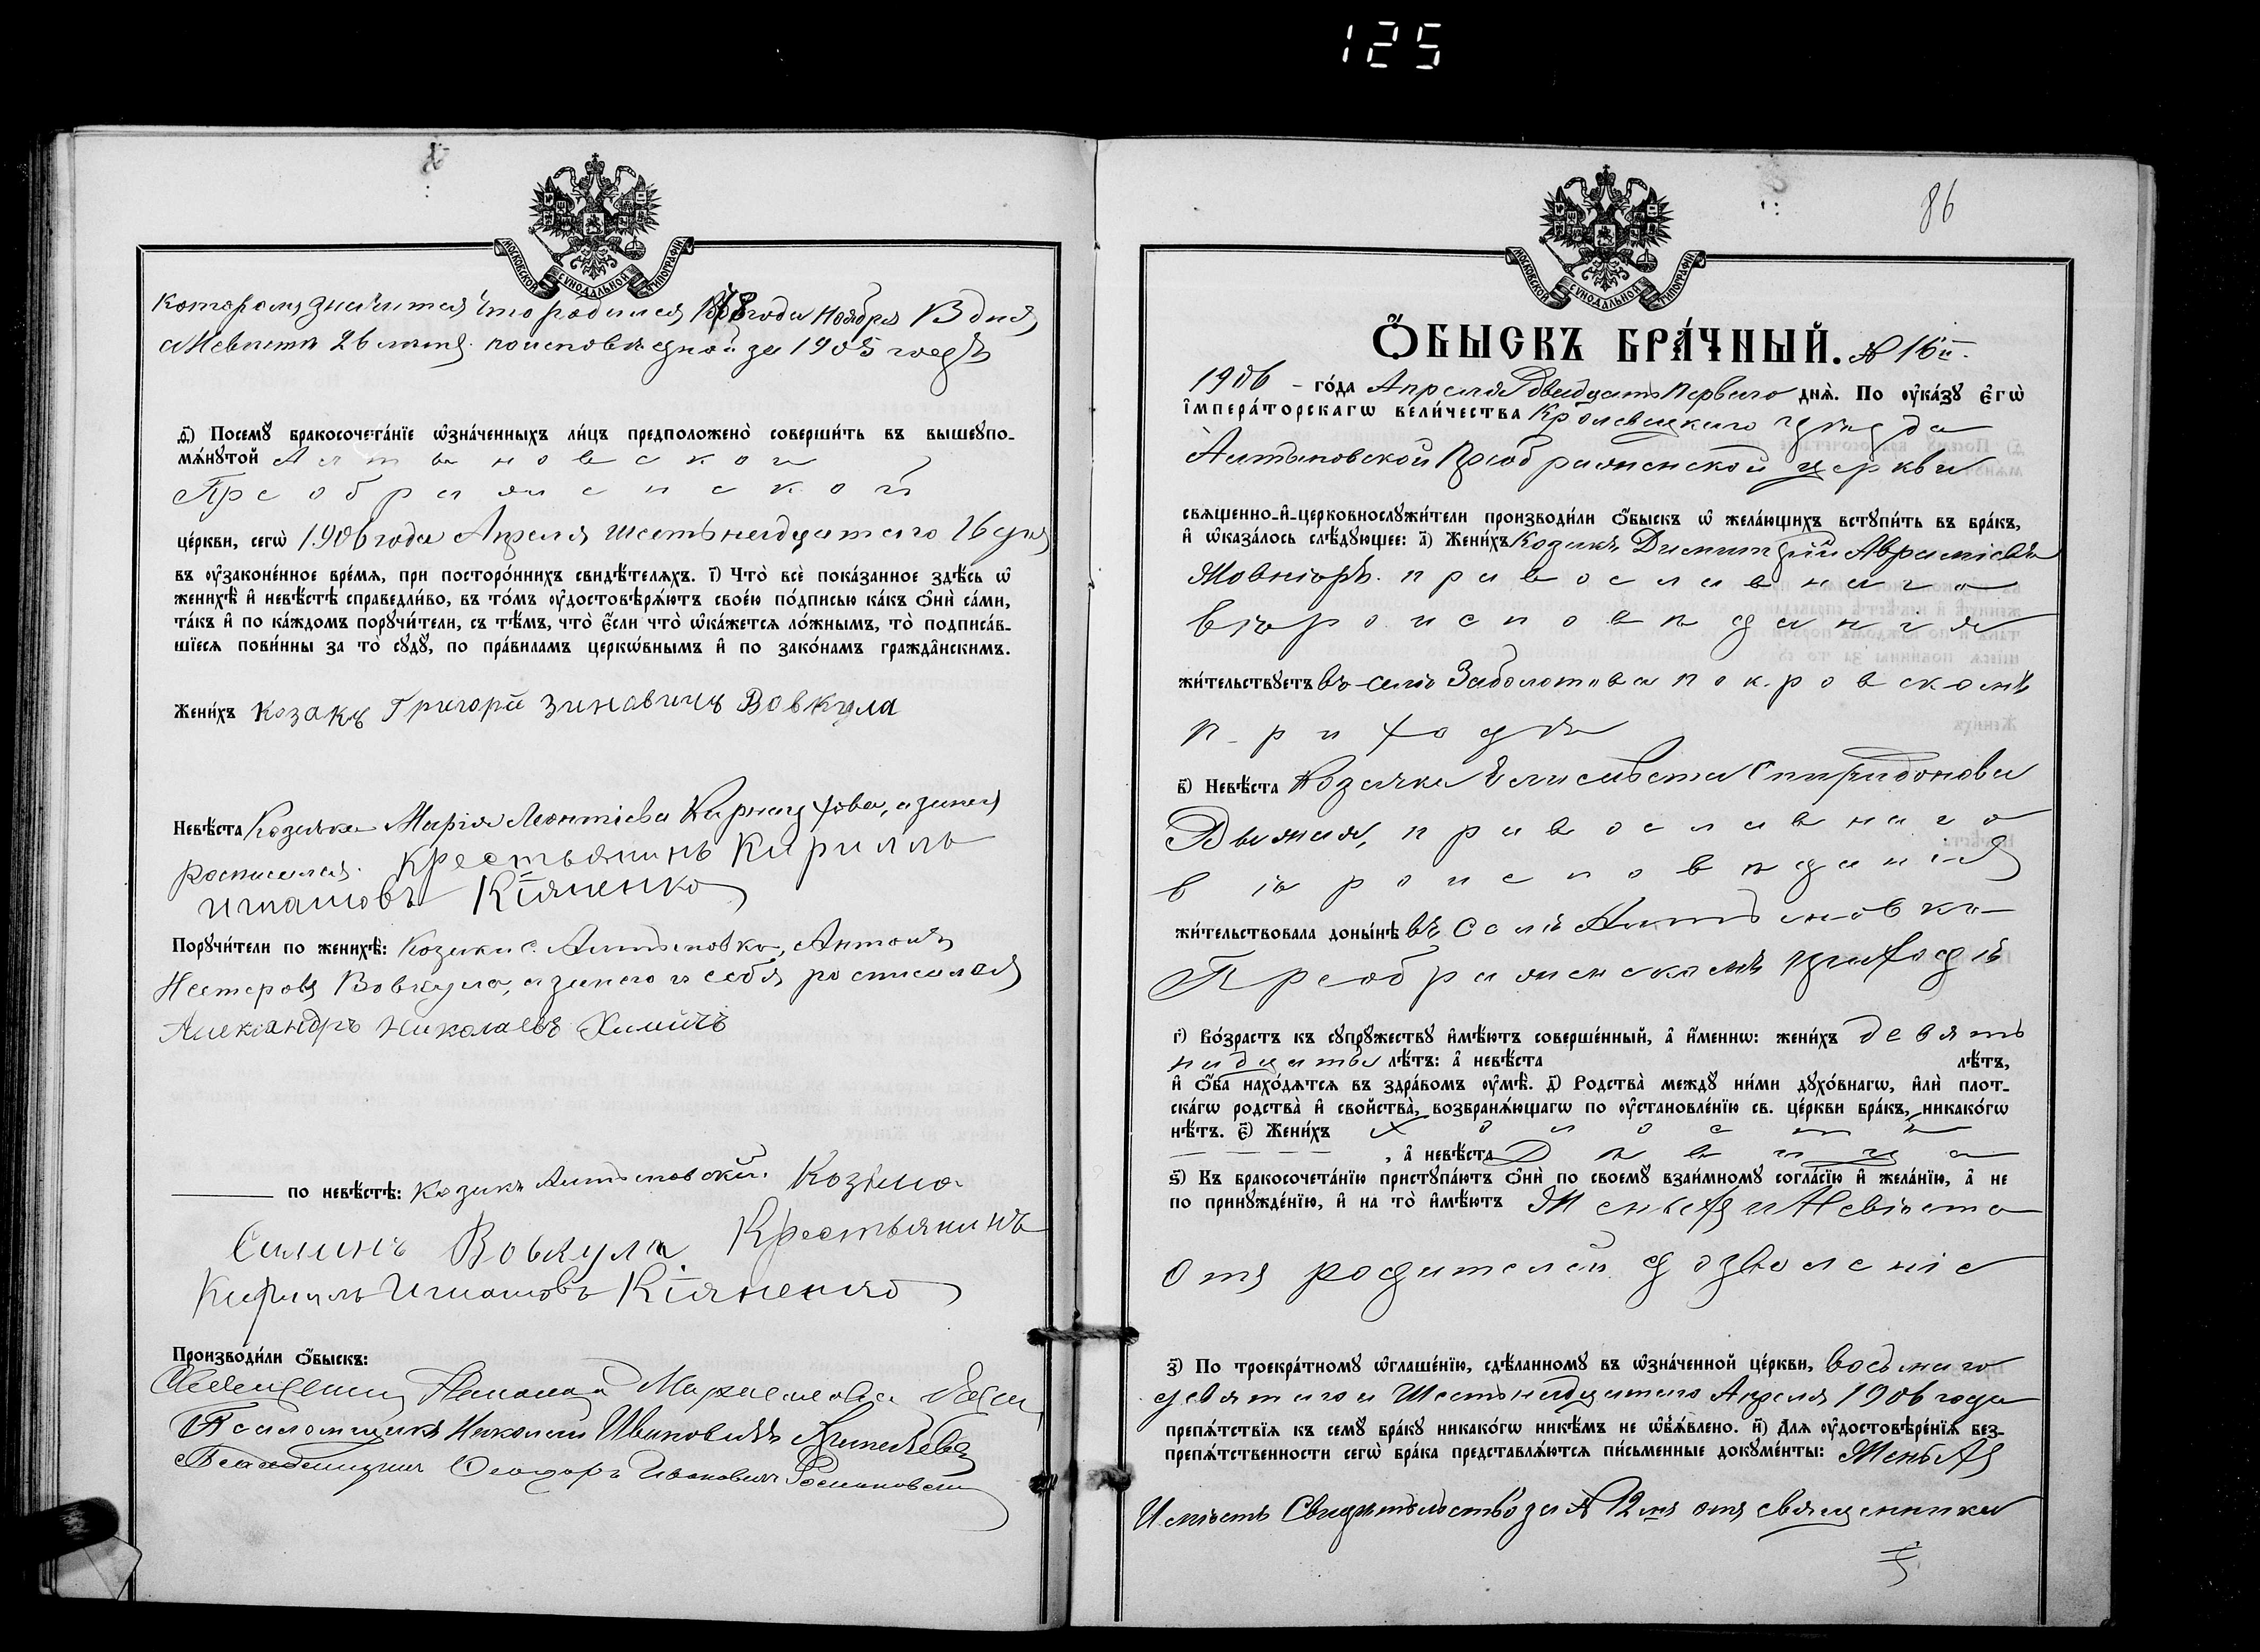 125
МОСКОВСКОЙ СѴНОДАЛЬНОЙ ТИПОГРАФІИ
котором значится что родился 1878 года ноября 13 дня,
а Невѣста 26 лѣтъ по исповѣдной за 1905 годъ
ѳ҃) Посемꙋ̀ бракосочета́нїе ѡ҆зна́ченныхъ ли́цъ предположено̀ соверши́ть въ вышеꙋпо-
мѧ́нꙋтой Алтыновской
Преображенской
це́ркви, сегѡ̀ 1906 года Апреля шестьнадцатаго 16 дня
въ ᲂу҆законе́нное вре́мѧ, при посторо́ннихъ свидѣ́телѧхъ. і҃) Что̀ всѐ пока́занное здѣ́сь ѡ҆
женихѣ̀ и҆ невѣ́стѣ справедли́во, въ то́мъ ᲂу҆достовѣрѧ́ютъ свое́ю по́дписью ка́къ ѻ҆нѝ са́ми,
та́къ и҆ по ка́ждомъ порꙋчи́тели, съ тѣ́мъ, что̀ є҆́сли что̀ ѡ҆ка́жетсѧ ло́жнымъ, то̀ подписа́в-
шїесѧ пови́нны за то̀ сꙋдꙋ̀, по пра́виламъ церкѡ́внымъ и҆ по зако́намъ гражда̑нскимъ.
Жени́хъ козакъ Григорій Зиновичъ Вовкула
Невѣ́ста Козачка Марія Леонтіева, а за нея
росписался крестьянинъ Кирилль
Игнатовъ Кіяненко
Порꙋчи́тели по женихѣ̀: Козаки с. Алтыновка, Антонъ
Нестеровъ Вовкула, а за него и себя росписался
Александръ Николаевъ Химичъ
по невѣ́стѣ: Козакъ Алтыновскій Козьма
Вовкула Крестьянинъ
Кириллъ Игнатовъ Кіяненко
Производи́ли ѻ҆́быскъ:
Священникъ
Псаломщикъ Николай Ивановичъ
Псаломщикъ Ѳеодоръ Ивановичъ
86
МОСКОВСКОЙ СѴНОДАЛЬНОЙ ТИПОГРАФІИ
Ѻ҆́БЫСКЪ БРА́ЧНЫЙ. № 16й.
1906 – го́да Апреля двадцать перваго днѧ̀. По ᲂу҆ка́зꙋ є҆гѡ̀
і҆мпера́торскагѡ вели́чества Кролевецкаго уезда
Алтыновской Преображенской церкви
свѧще́нно-и҆-церковнослꙋжи́тели производи́ли ѻ҆́быскъ ѡ҆ жела́ющихъ встꙋпи́ть въ бра́къ,
и҆ ѡ҆каза́лось слѣ́дꙋющее: а҃) Жени́хъ Козакъ Димитрій Авраміевъ
Мовчюръ православнаго
вѣроисповѣданія
жи́тельствꙋетъ въ селѣ Заболотова покровскомъ
приходѣ
в҃) Невѣ́ста Козачка Елисавета Спиридонова
православнаго
вѣроисповѣданія
жи́тельствовала доны́нѣ въ селѣ Алтыновка
Преображенскомъ приходѣ
г҃) Во́зрастъ къ сꙋпрꙋ́жествꙋ и҆мѣ́ютъ соверше́нный, а҆ и҆́меннѡ: жени́хъ девять
надцать лѣ́тъ: а҆ невѣ́ста лѣ́тъ,
и҆ ѻ҆́ба нахо́дѧтсѧ въ здра́вомъ ᲂу҆мѣ̀. д҃) Родства̀ междꙋ̀ ни́ми дꙋхо́внагѡ, и҆лѝ плот-
ска́гѡ родства̀ и҆ свойства̀, возбранѧ́ющагѡ по ᲂу҆становле́нїю св. це́ркви бра́къ, никако́гѡ
нѣ́тъ. є҃) Жени́хъ холостъ
, а҆ невѣ́ста Дѣвица
ѕ҃) Къ бракосочета́нїю пристꙋпа́ютъ ѻ҆нѝ по своемꙋ̀ взаи́мномꙋ согла́сїю и҆ жела́нїю, а҆ не
по принꙋжде́нїю, и҆ на то̀ и҆мѣ́ютъ Женихъ и Невѣста
отъ родителей дозволеніе
з҃) По троекра́тномꙋ ѡ҆глаше́нїю, сдѣ́ланномꙋ въ ѡ҆зна́ченной це́ркви, восьмаго
девятаго и Шестьнадцатаго Апреля 1906 года
препѧ́тствїѧ къ семꙋ̀ бра́кꙋ никако́гѡ никѣ́мъ не ѡ҆б̾ѧ́влено. и҃) Для ᲂу҆достовѣре́нїѧ без-
препѧ́тственности сегѡ̀ бра́ка представлѧ́ютсѧ пи́сьменные докꙋме́нты: Женихъ
имѣетъ Свидѣтельство за № 12мъ отъ священника